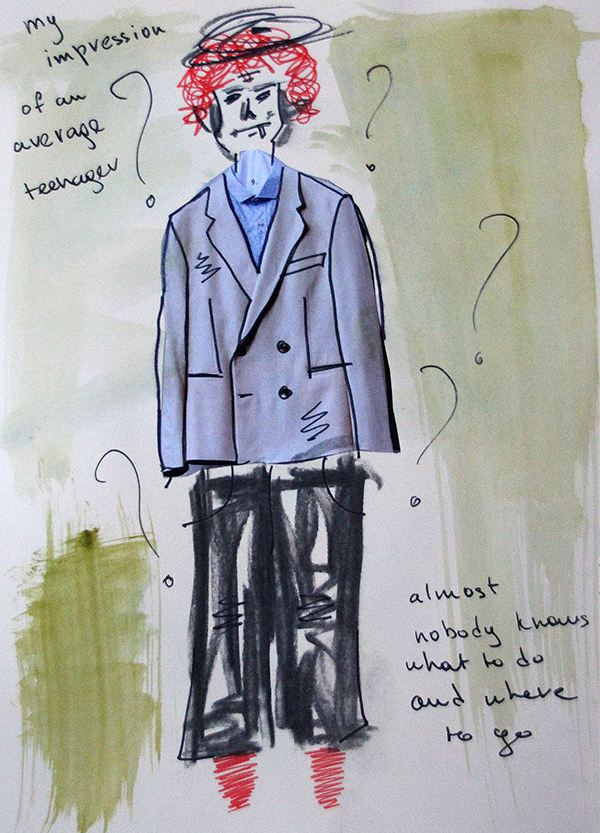 my
impression
of an
average
teenager
almost
nobody knows
what to do
and where
to go